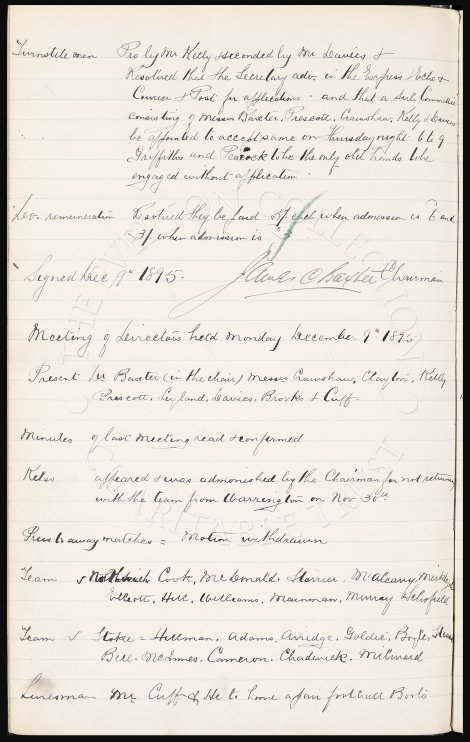 Turnstile men Pro by Mr Kelly & seconded by Mr Davies &
Resolved that the Secretary adv. in the Express Echo &
Courier & Post for applications. and that a Sub Committee
consisting of Messrs Baxter, Prescott, Crawshaw, Kelly & Davies
be appointed to accept same on Thursday night 6 to 9
Griffiths and Peacock to be the only old hands to be
engaged without application.
Do remuneration Resolved they be paid 5/ each when admission is 6 and
3/ when admission is 3
Signed Dec 9th 1895. James C Baxter Chairman
Meeting of Directors held Monday December 9th 1895
Present Dr Baxter (in the chair) Messrs Crawshaw, Clayton, Kelly
Prescott. Leyland. Davies, Brooks & Cuff.
Minutes of last Meeting read & confirmed
Kelso appeared & was admonished by the Chairman for not returning
with the team from Warrington on Nov 30th
Press to away matches = Motion withdrawn
Team v Northwich Cook, McDonald. Storrier. McAleavy,
Elliott, Hill, Williams, Mainman, Murray Schofield
Team v Stoke = Hillman. Adams, Arridge, Goldie, Boyle,
Bell. McInnes. Cameron. Chadwick. Milward
Linesman Mr Cuff & He to have a pair football Boots
THE EVERTON COLLECTION
CHARITABLE TRUST